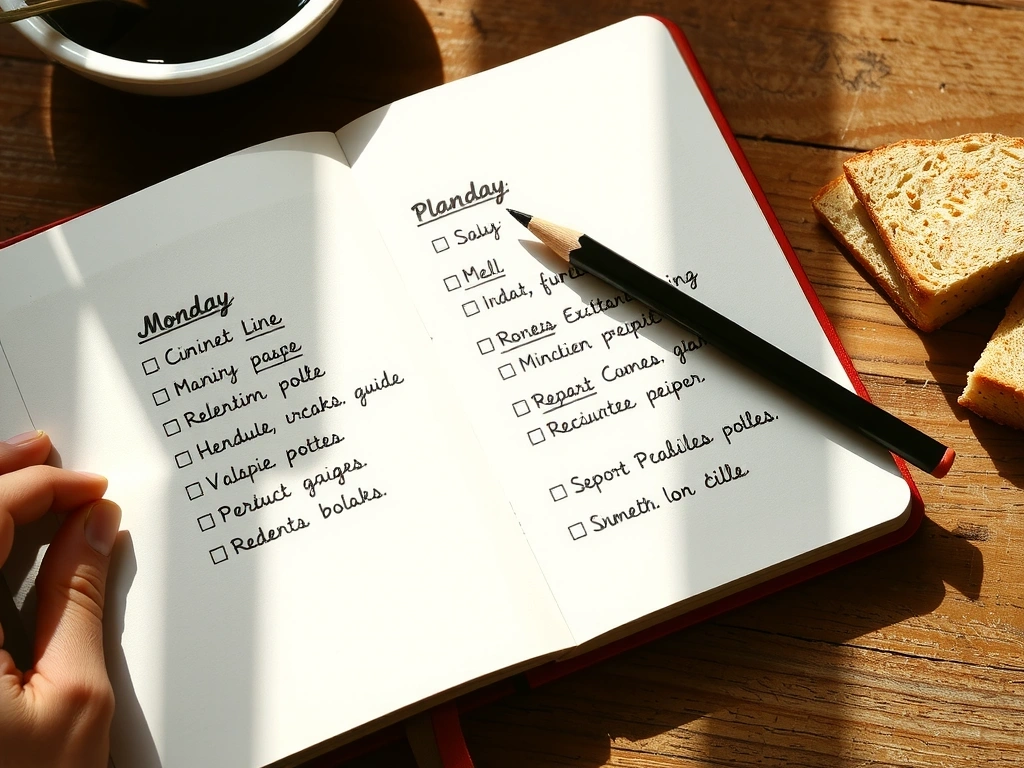 Monday
Cininet Line
Maniny paspe
Relentim polte
Hendule, urcaks. guide
Valspie pottes
Pertuct gaiges.
Redents bolaks.
Planday.
Saly
Mell
Indat,
Ronezs
Minctien preipit
Repart Cumes.
Reciuntee peiper.
Seport Peabiles polles.
Snmeth. lon cille